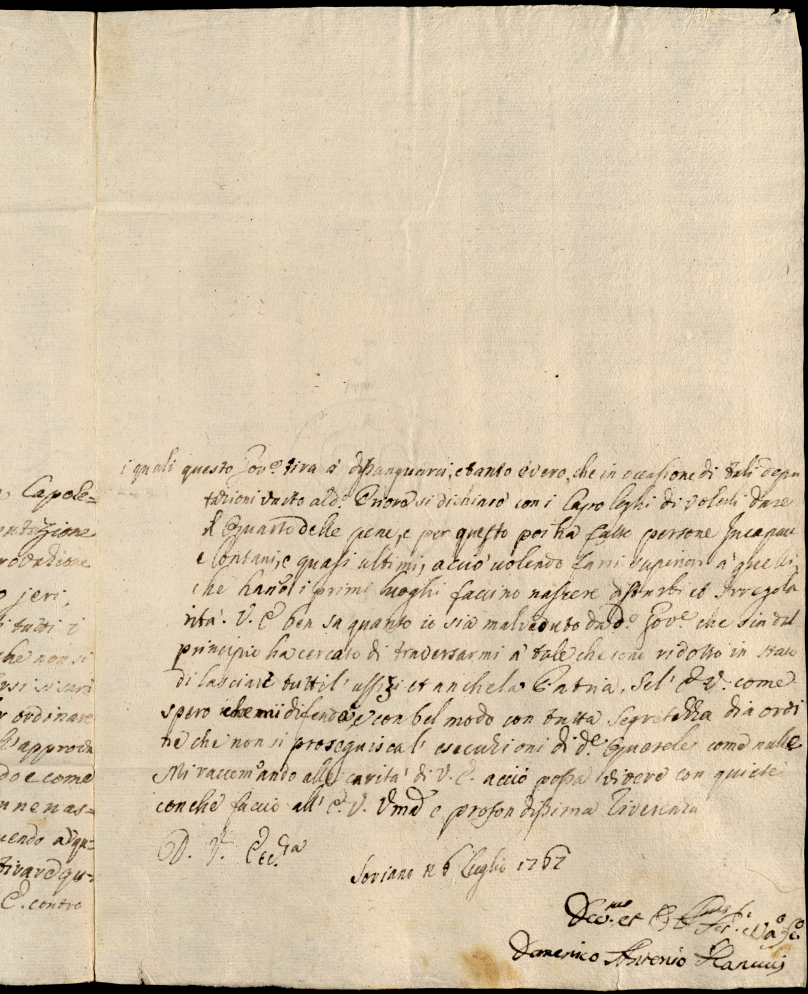 Capole=
jeri,
tutti i
che non si
ordinare
l'approva
do e come
E. contro
i quali questo Gov.e tira à dissanguarci, e tanto è vero, che in occasione di tali depu
tazioni unito al d.o Priore si dichiarò con i Capo loghi di volerli dare
il Quarto delle pene, e per questo poi hà fatte persone Incapaci
e lontani, e quasi ultimi, acciò volendo farsi superiori a quelli,
che hanno i primi luoghi faccino nascere disturbi et Irregola
rità. V. E. ben sa quanto io sia malveduto da d.o Gov.e che sin dal
principio ha cercato di traversarmi à tale che sono ridotto in stato
di lasciare tutti l'uffizi et anche la Patria. Se l'E. V. come
spero che mi difenda, e con bel modo con tutta segretezza dia ordi
ne che non si proseguisca l'esecuzioni di d.e Querele come nulle
Mi raccomando alla carità di V. E. acciò possa vivere con quiete
con che faccio all'E. V. Um.a e profondissima riverenza
D. V. Ecc.za
Soriano li 6 Luglio 1767
Dev.mo et
Domenico Antonio